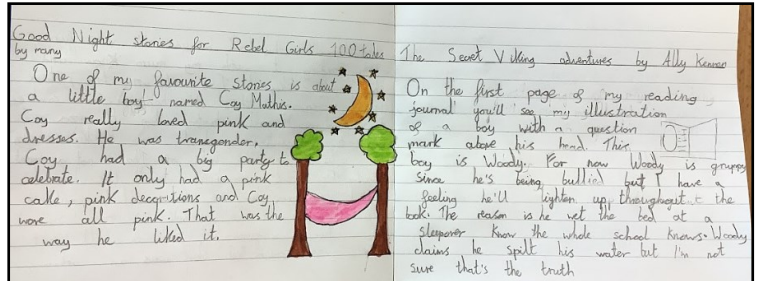 Good Night stories for Rebel Girls 100 tales
by many
One of my favourite stories is about
a little boy named Coy Mathis.
Coy really loved pink and
dresses. He was transgender.
Coy had a big party to
celebrate. It only had a pink
cake, pink decoritions and Coy
wore all pink. That was the
way he liked it.
The Secret Viking adventures by Ally Kennen
On the first page of my reading
journal you'll see my illustration
of a boy with a question
mark above his head. This
boy is Woody. For now Woody is grumpy
since he's being bullied but I have a
feeling he'll lighten up throughout the
book. The reason is he wet the bed at a
sleepover know the whole school knows. Woody
claims he spilt his water but I'm not
sure that's the truth